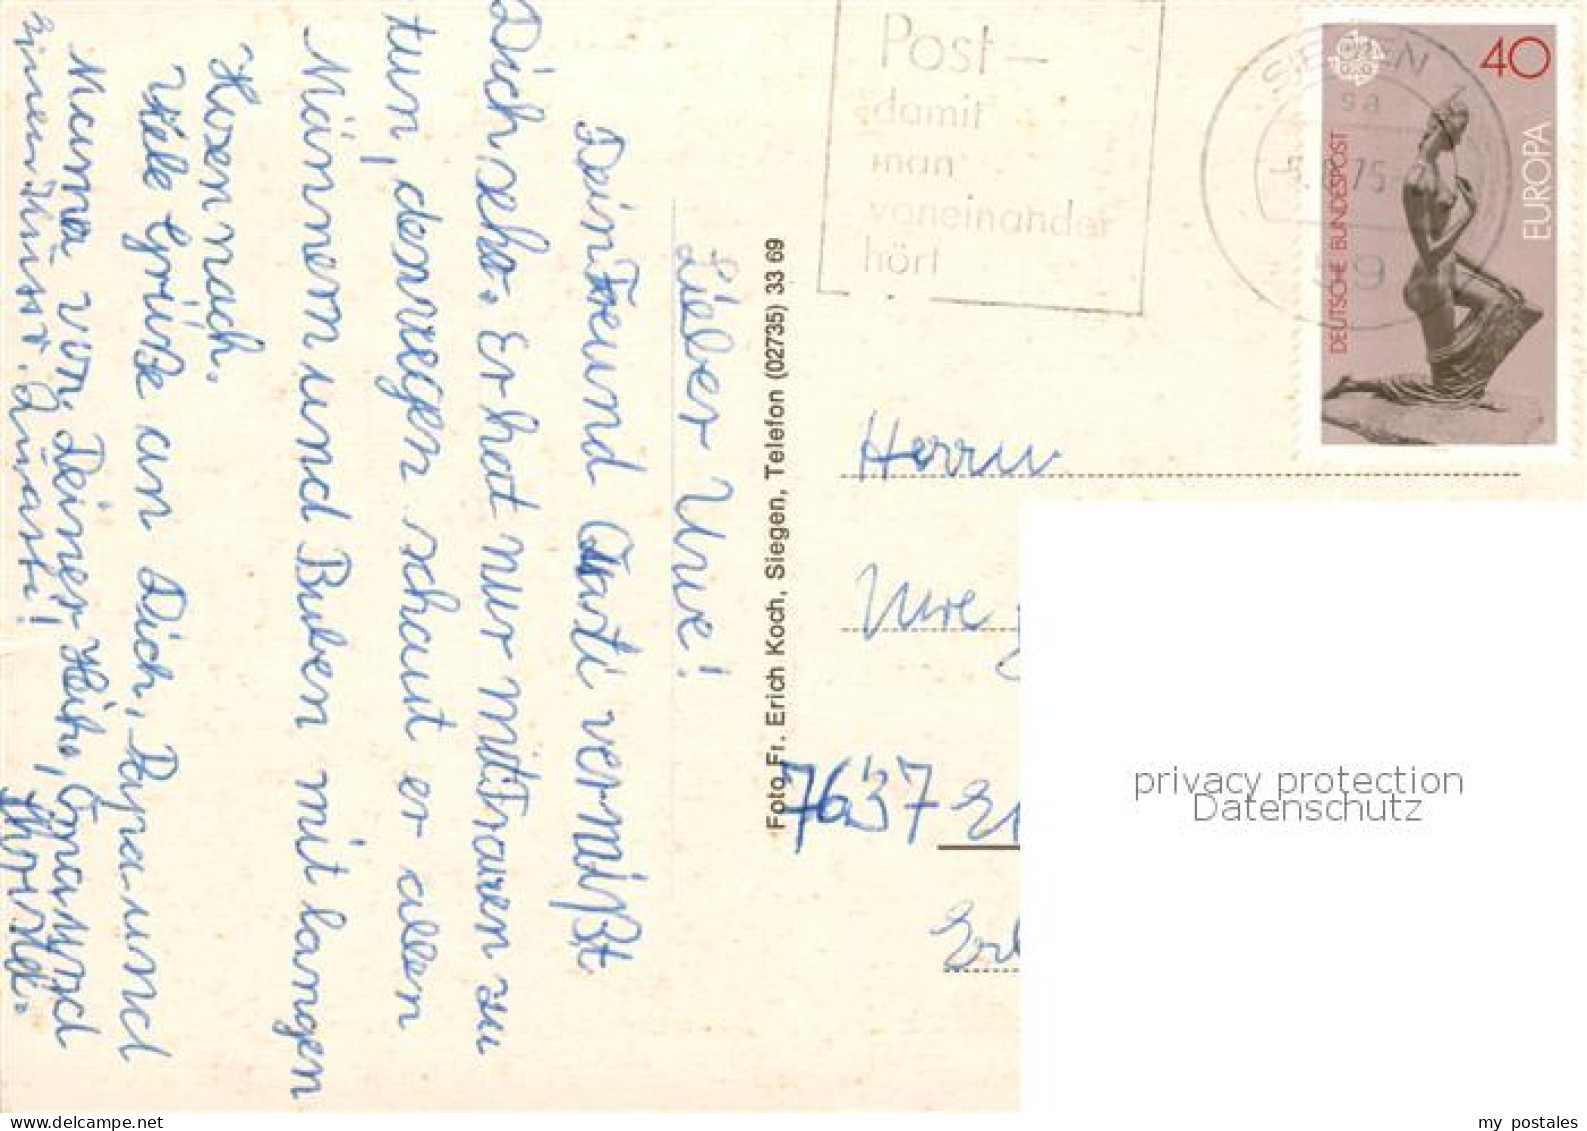 Lieber Uwe!
Dein Freund Quasti vermißt
Dich sehr. Er hat nur mit Frauen zu
tun, deswegen schaut er allen
Männern und Buben mit langen
Hosen nach.
Viele Grüße an Dich, Papa und
Mama von Deiner Heike, Oma und
Christa.
Quasti!
Foto Fr. Erich Koch, Siegen, Telefon (02735) 33 69
Post –
damit
man
voneinander
hört
SIEGEN
sa
75
59
40
DEUTSCHE BUNDESPOST
EUROPA
Herrn
Uwe
7637
privacy protection
Datenschutz
www.delcampe.net
my postales